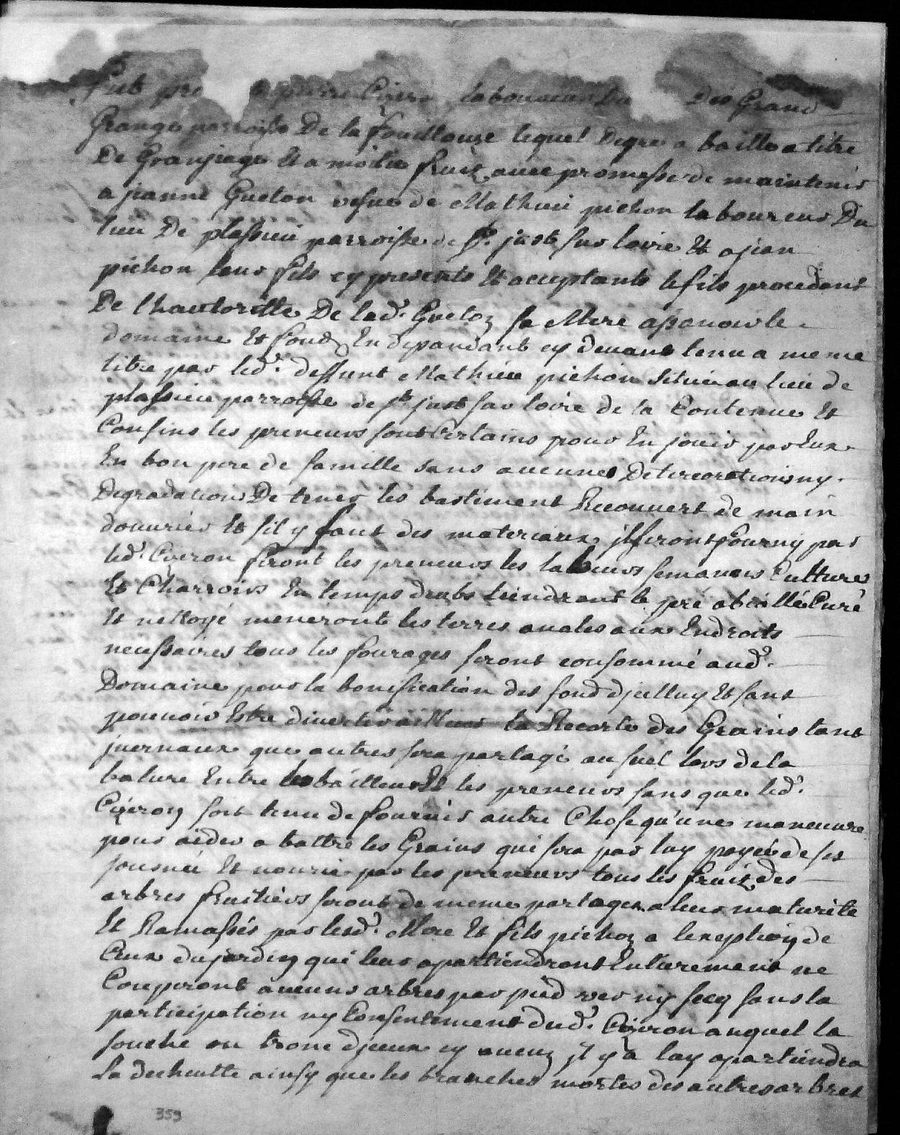 Fut pre pierre Cizeron laboureur Du Des Grand
Granges parroisse De la fouillouze lequel degré a baillé a titre
De Granjeage Et a moitié fruit avec promesse de maintenir
a jeanne Gueton vefue de Mathieu pichon laboureur Du
lieu De plassieu parroisse de St. just sur loire Et a jean
pichon leur fils cy presents Et acceptants le fils procedant
De l'hautoritté De lad.e Gueton sa Mere asscavoir le
domaine Et fond En dependant cy devant tenu a meme
titre par led.t deffunt Mathieu pichon situé au lieu de
plassieu parroisse de St. just sur loire de la Contenue Et
Confins les preneurs sont Certains pour En jouir par Eux
En bon pere de famille sans aucunes Deterioration ny
Degradation De tenir les bastiment Recouvert de main
douvrier Et sil y faut des materiaux ils seront fourny par
led.t Cizeron feront les preneurs les labeurs semances Cultures
Et Charrois En temps deubs tiendront le pré abeallé Curé
Et nettoyé meneront les terres avales aux Endroits
necessaires tous les fourages seront consommé aud.t
Domaine pour la bonification des fond djcelluy Et sans
pouvoir Estre divertir ailleurs la Recorte des Grains tant
jvernaux que autres sera partagé au suel lors de la
bature Entre les bailleur Et les preneurs sans que led.t
Cizeron soit tenu de fournir autre Chose qu'une maneuvre
pour aider a battre les Grains qui sera par luy payée de sa
journée Et nourie par les preneurs tous les fruit des
arbres fruitiers seront de meme partagez a leur maturité
Et Ramassés par lesd.t Mere Et fils pichon a lexeption de
Ceux du jardin qui leur apartiendront Entierement ne
Couperont aucuns arbres par pied verd ny secq sans la
participation ny Consentement dud.t Cizeron auquel la
souche ou tronc djceux cy aucuns jl y a luy apartiendra
la dechutte ainsy que les branches mortes des autres arbres
359